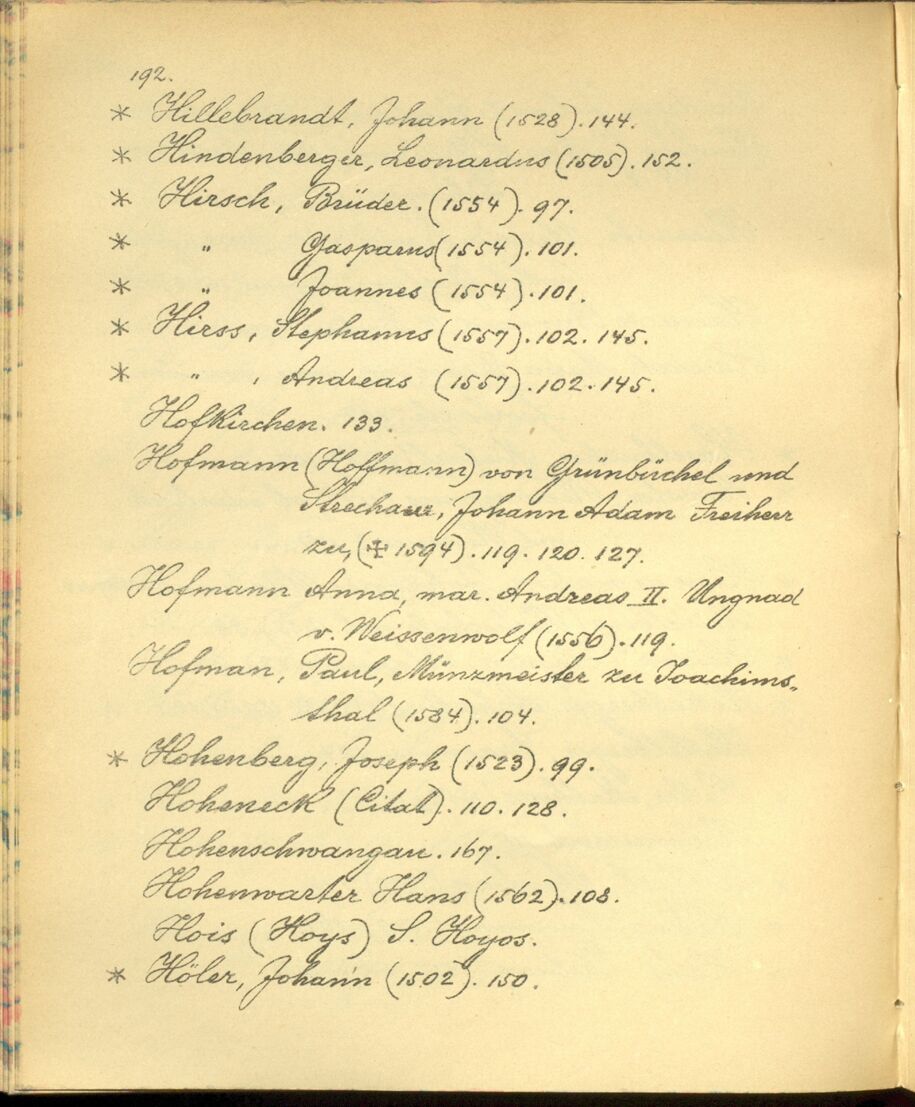 192.
* Hillebrandt, Johann (1528). 144.
* Hindenberger, Leonardus (1505). 152.
* Hirsch, Brüder. (1554). 97.
* " Gasparus (1554). 101.
* " Joannes (1554). 101.
* Hirss, Stephanus (1557). 102. 145.
* " , Andreas (1557). 102. 145.
Hofkirchen. 133.
Hofmann (Hoffmann) von Grünbüchel und
Strechau, Johann Adam Freiherr
zu, (✠ 1594). 119. 120. 127.
Hofmann Anna, mar. Andreas II. Ungnad
v. Weissenwolf (1556). 119.
Hofman, Paul, Münzmeister zu Joachims-
thal (1584). 104.
* Hohenberg, Joseph (1523). 99.
Hoheneck (Citat). 110. 128.
Hohenschwangau. 167.
Hohenwarter Hans (1562). 108.
Hois (Hoys) S. Hoyos.
* Höler, Johann (1502). 150.